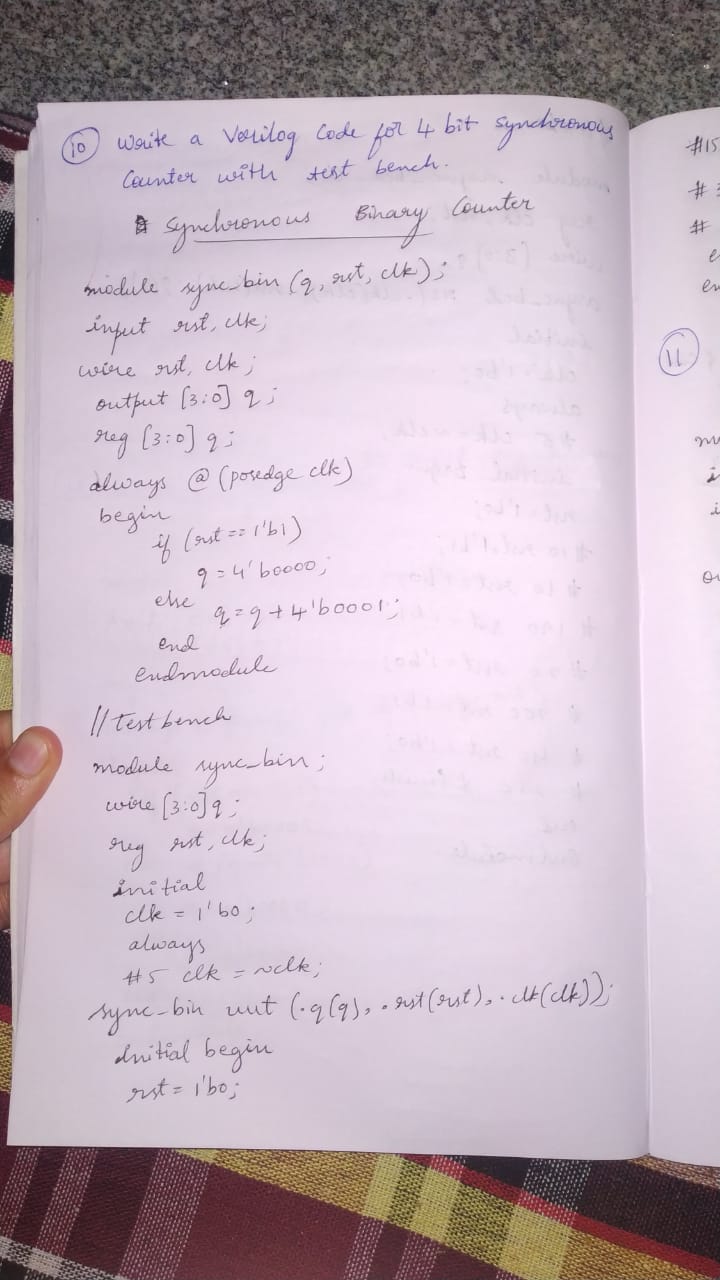 10 Write a Verilog Code for 4 bit synchronous
Counter with test bench.
Synchronous Binary Counter
module sync_bin (q, rst, clk);
input rst, clk;
wire rst, clk;
output [3:0] q;
reg [3:0] q;
always @ (posedge clk)
begin
if (rst == 1'b1)
q = 4'b0000;
else q = q + 4'b0001;
end
endmodule
// Test bench
module sync_bin;
wire [3:0] q;
reg rst, clk;
initial
clk = 1'b0;
always
#5 clk = ~clk;
sync_bin uut (.q(q), .rst(rst), .clk(clk));
Initial begin
rst = 1'b0;
#15
#
e
en
11